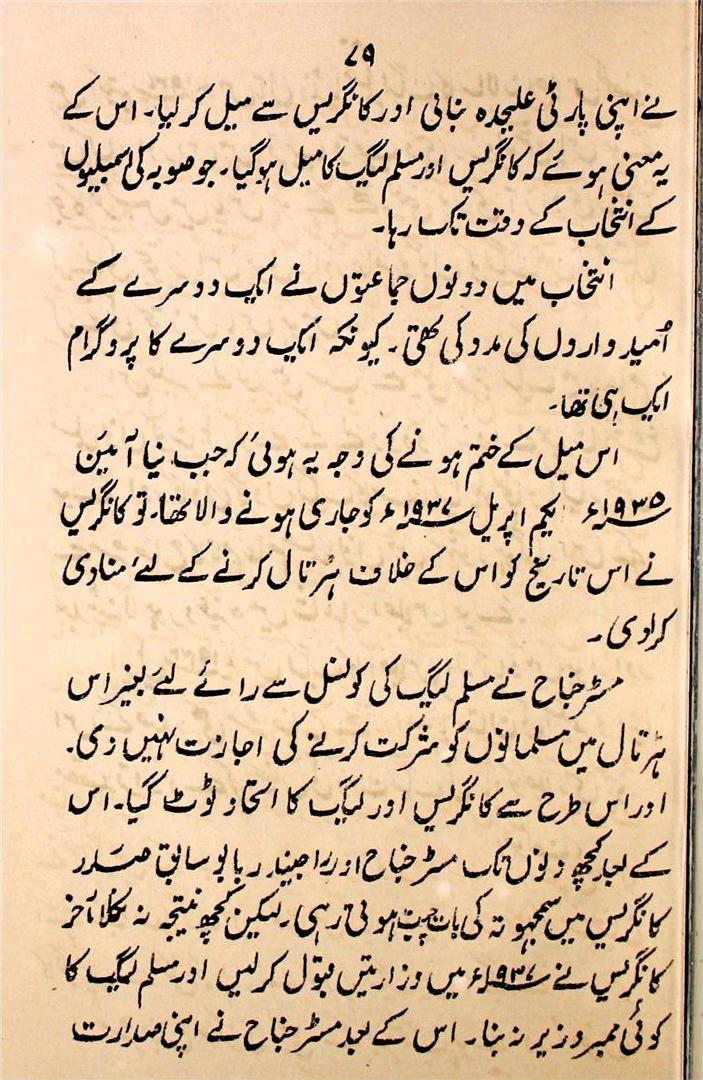 ۷۹
نے اپنی پارٹی علیحدہ بنائی اور کانگریس سے میل کر لیا۔ اس کے
یہ معنی ہوئے کہ کانگریس اور مسلم لیگ کا میل ہو گیا۔ جو صوبہ کی اسمبلیوں
کے انتخاب کے وقت تک رہا۔
انتخاب میں دونوں جماعتوں نے ایک دوسرے کے
اُمید واروں کی مدد کی تھی۔ کیونکہ ایک دوسرے کا پروگرام
ایک ہی تھا۔
اس میل کے ختم ہونے کی وجہ یہ ہوئی کہ جب نیا آئین
۱۹۳۵ء یکم اپریل ۱۹۳۷ء کو جاری ہونے والا تھا۔ تو کانگریس
نے اس تاریخ کو اس کے خلاف ہڑتال کرنے کے لئے منادی
کرا دی۔
مسٹر جناح نے مسلم لیگ کی کونسل سے رائے لئے بغیر اس
ہڑتال میں مسلمانوں کو شرکت کرنے کی اجازت نہیں دی۔
اور اس طرح سے کانگریس اور لیگ کا اتحاد ٹوٹ گیا۔ اس
کے بعد کچھ دنوں تک مسٹر جناح اور راجیندر بابو سابق صدر
کانگریس میں سمجہوتہ کی بات چیت ہوتی رہی۔ لیکن کچھ نتیجہ نہ نکلا آخر
کانگریس نے ۱۹۳۷ء میں وزارتیں قبول کر لیں اور مسلم لیگ کا
کوئی ممبر وزیر نہ بنا۔ اس کے بعد مسٹر جناح نے اپنی صدارت